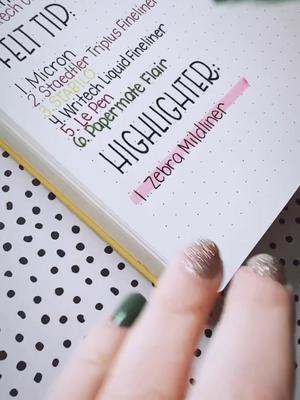 Fineliner
FELT TIP:
1. Micron
2. Staedtler Triplus Fineliner
3. STABILO
4. Writech Liquid Fineliner
5. Le Pen
6. Papermate Flair
HIGHLIGHTER:
1. Zebra Mildliner